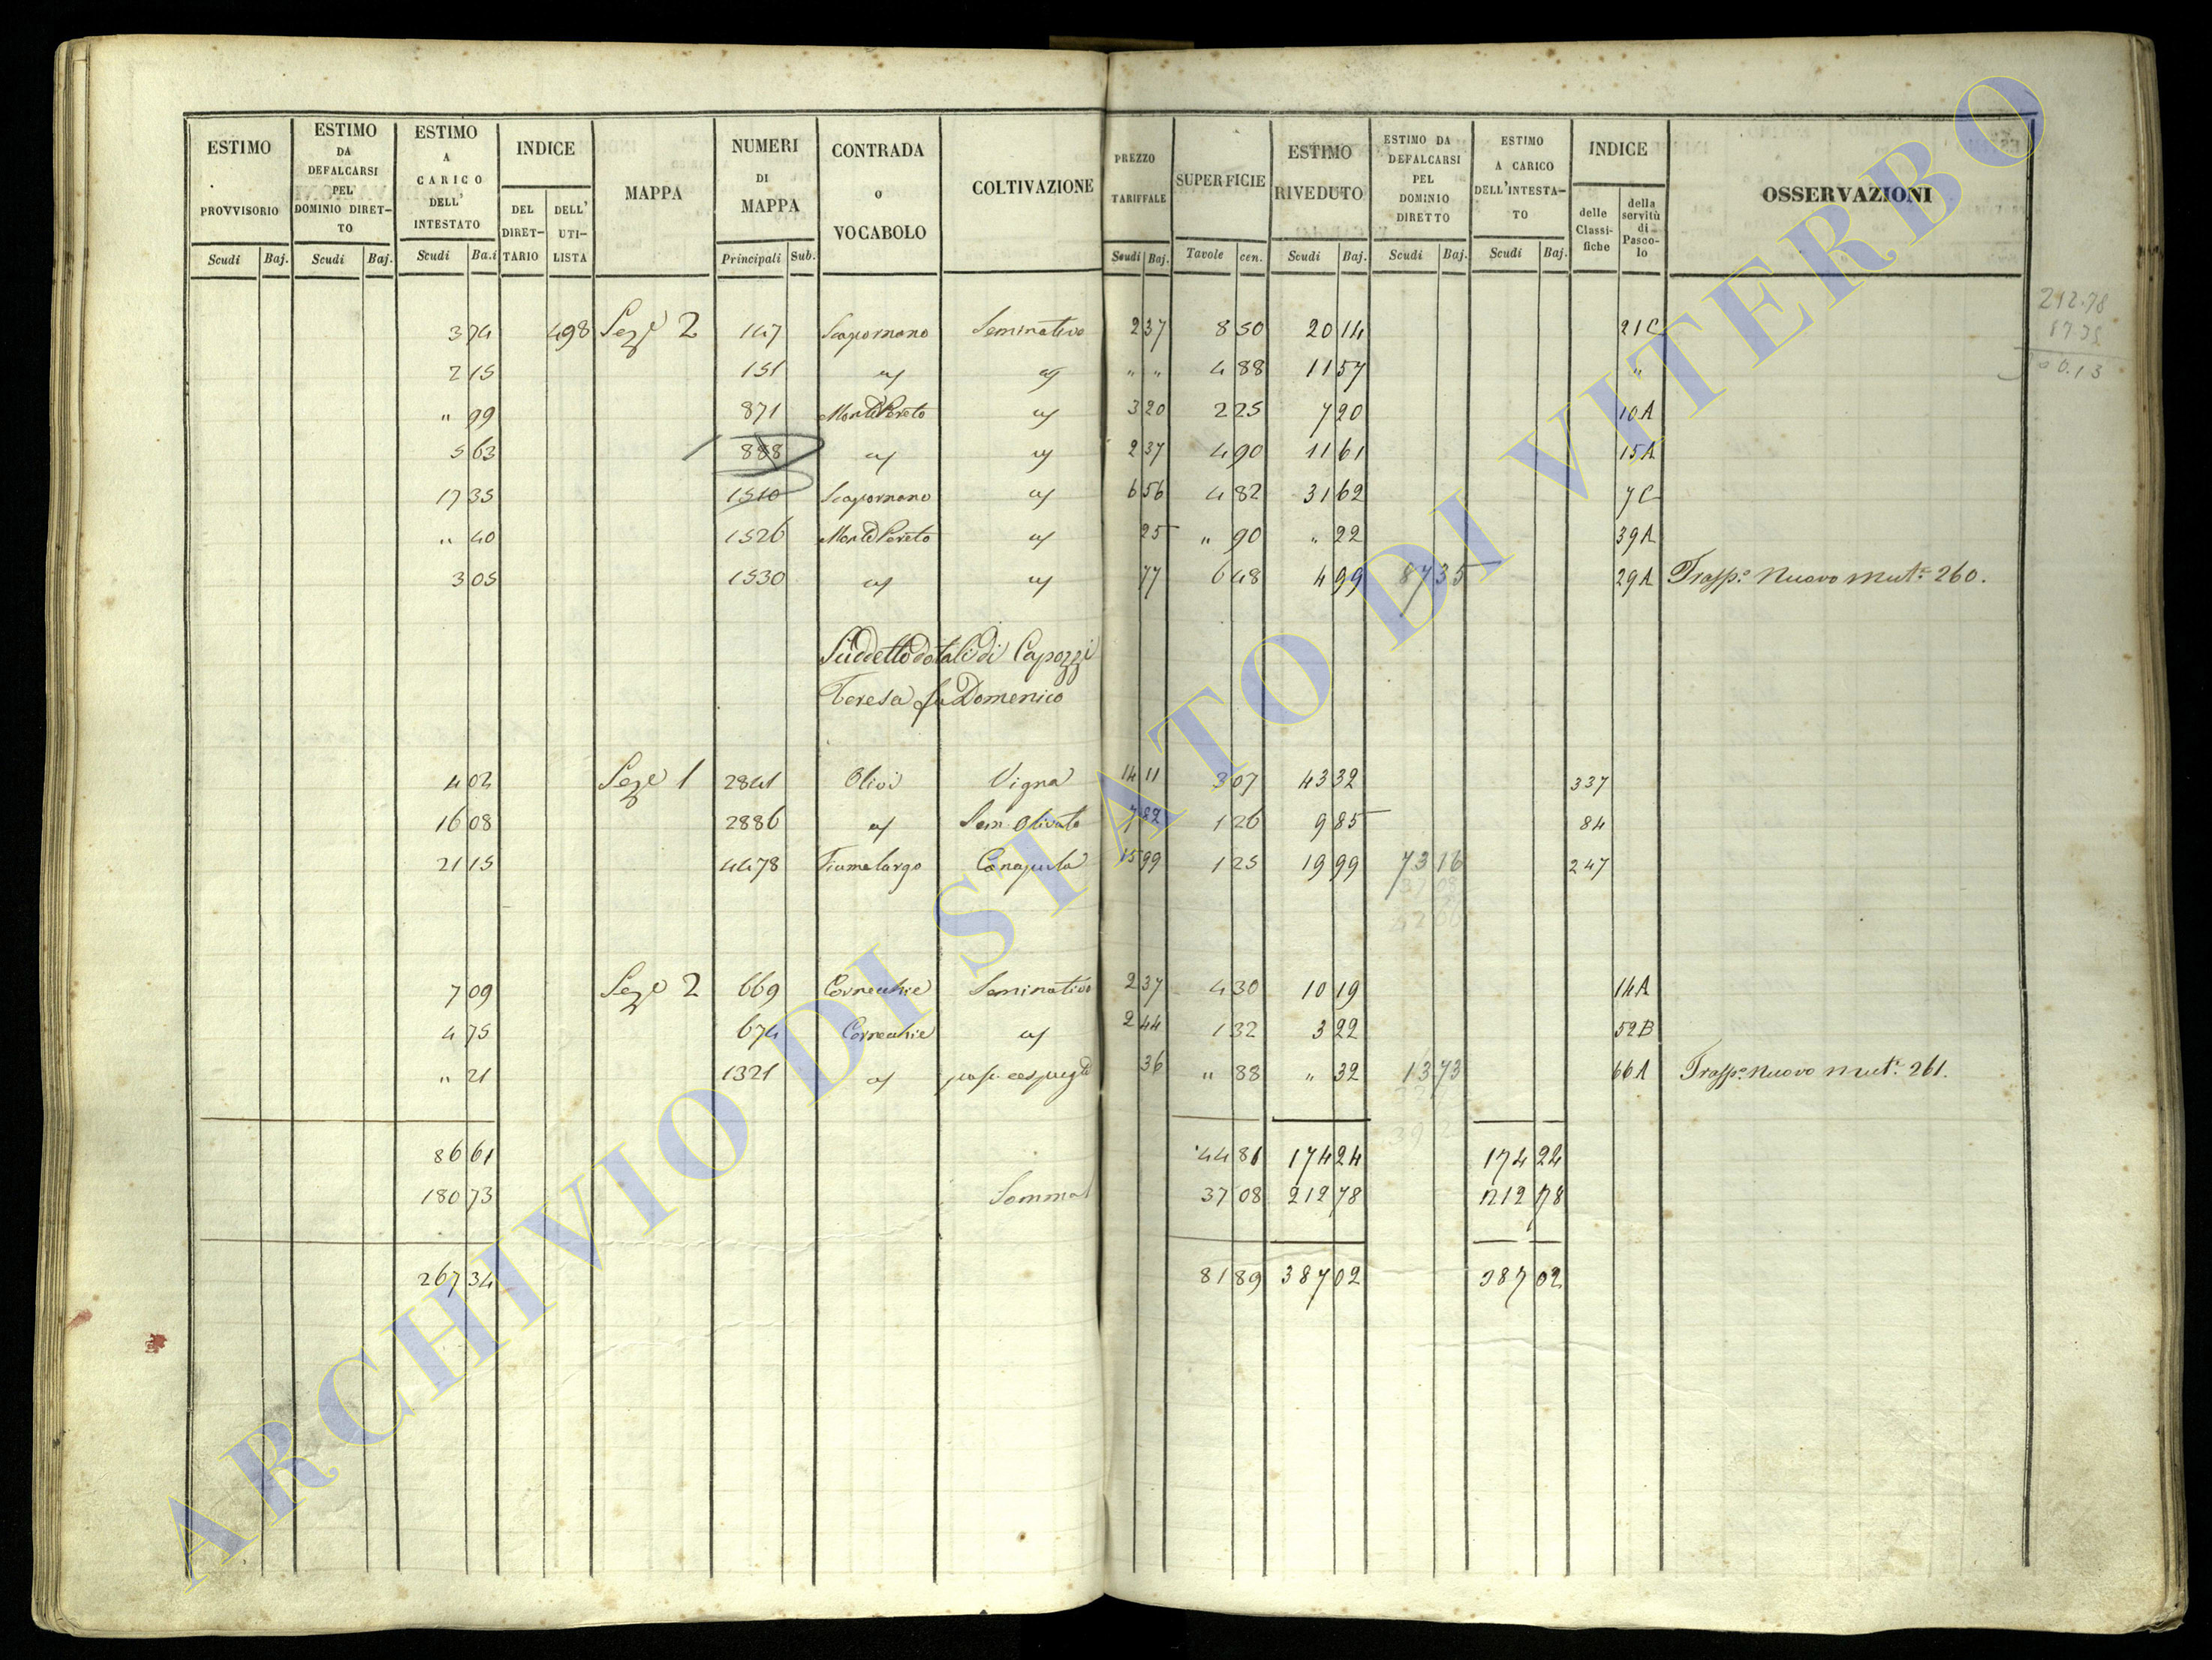 ESTIMO PROVVISORIO
ESTIMO DA DEFALCARSI PEL DOMINIO DIRET-TO
ESTIMO A CARICO DELL' INTESTATO
INDICE
DEL DIRET-TARIO
DELL' UTI-LISTA
MAPPA
NUMERI DI MAPPA
CONTRADA o VOCABOLO
COLTIVAZIONE
PREZZO TARIFFALE
SUPERFICIE
ESTIMO RIVEDUTO
ESTIMO DA DEFALCARSI PEL DOMINIO DIRETTO
ESTIMO A CARICO DELL'INTESTA-TO
INDICE
delle Classi-fiche
della servitù di Pasco-lo
OSSERVAZIONI
Scudi Baj. Scudi Baj. Scudi Ba.i Principali Sub. Scudi Baj. Tavole cen. Scudi Baj. Scudi Baj. Scudi Baj.
212.78
3 74 498 Seze 2 147 Scapornano Seminativo 2 37 8 50 20 14 21C
2 15 151 " " 4 88 11 57 "
" 99 871 Monte Pareto 3 20 2 25 7 20 10A
5 63 888 2 37 4 90 11 61 15A
17 35 1510 Scapornano 6 56 4 82 31 62 7C
" 40 1526 Monte Pareto 25 " 90 " 22 39A
3 05 1530 77 6 48 4 99 87 35 29A Trassp.o Nuovo mut.e 260.
Suddetto dotali di Capozzi
Teresa fu Domenico
4 02 Seze 1 2841 Olivi Vigna 14 11 3 07 43 32 337
16 08 2886 Sem. Olivato 7 82 1 26 9 85 84
21 15 4478 Fiumelargo Canapula 15 99 1 25 19 99 73 16 247
7 09 Seze 2 669 Cornecchie Seminativo 2 37 4 30 10 19 14A
4 75 674 Cornecchie 2 44 1 32 3 22 52B
" 21 1321 36 " 88 " 32 13 73 66A Trassp.o Nuovo mut.e 261.
86 61 44 81 174 24 174 24
180 73 Somma 37 08 212 78 212 78
267 34 81 89 387 02 387 02
ARCHIVIO DI STATO DI VITERBO